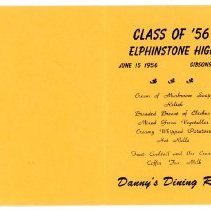 CLASS OF '56
ELPHINSTONE HIG
JUNE 15 1956 GIBSONS
Cream of Mushroom Soup
Relish
Breaded Breast of Chicken
Mixed Green Vegetables
Creamy Whipped Potatoes
Hot Rolls
Fruit Cocktail and Ice Cream
Coffee Tea Milk
Danny's Dining R